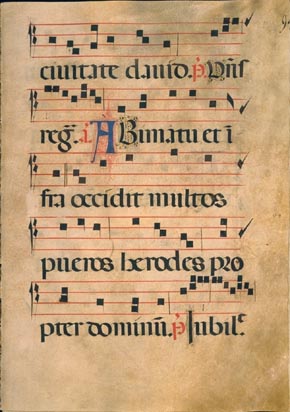 ciuitate dauid. p̄ Dn̄s
reg̃. a. A Bimatu et ī
fra occidit multos
pueros herodes pro
pter dominū. p̄ Iubil.